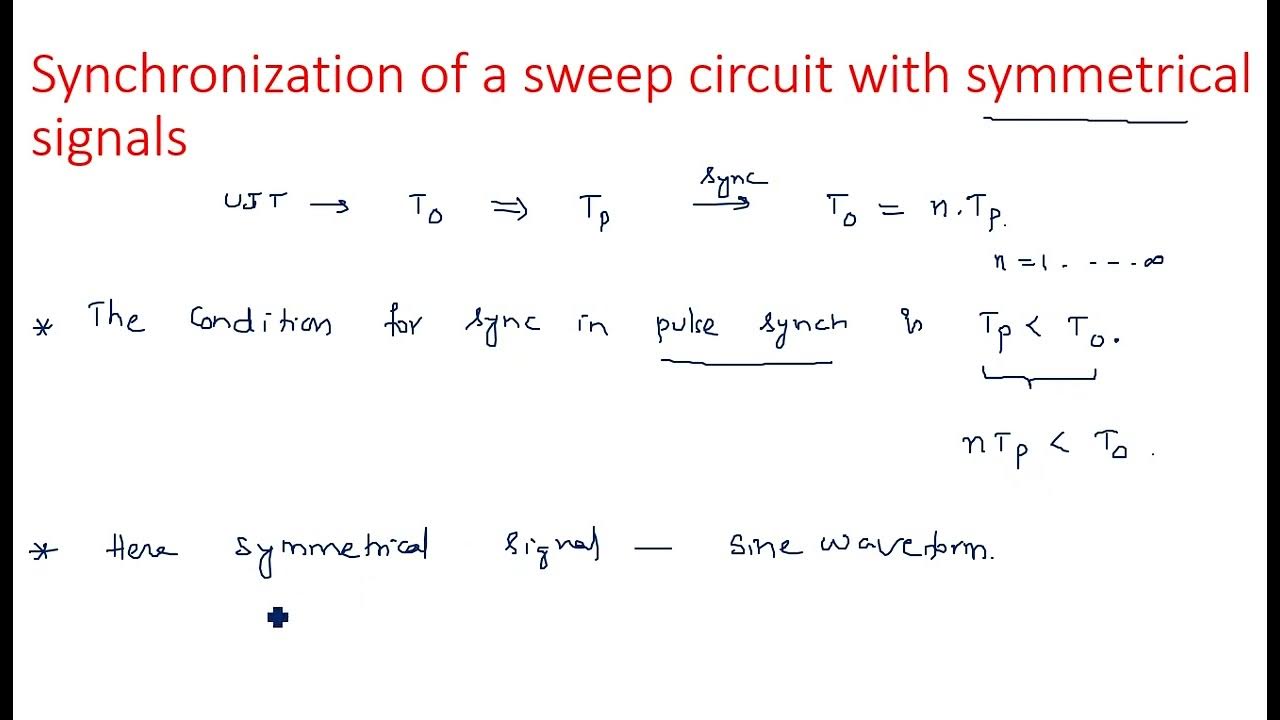 Synchronization of a sweep circuit with symmetrical
signals
UJT → To ⇒ Tp sync → To = n.Tp.
n = 1 . - - - . ∞
* The Condition for sync in pulse synch is Tp < To.
nTp < To .
* Here symmetrical signal — sine waveform.